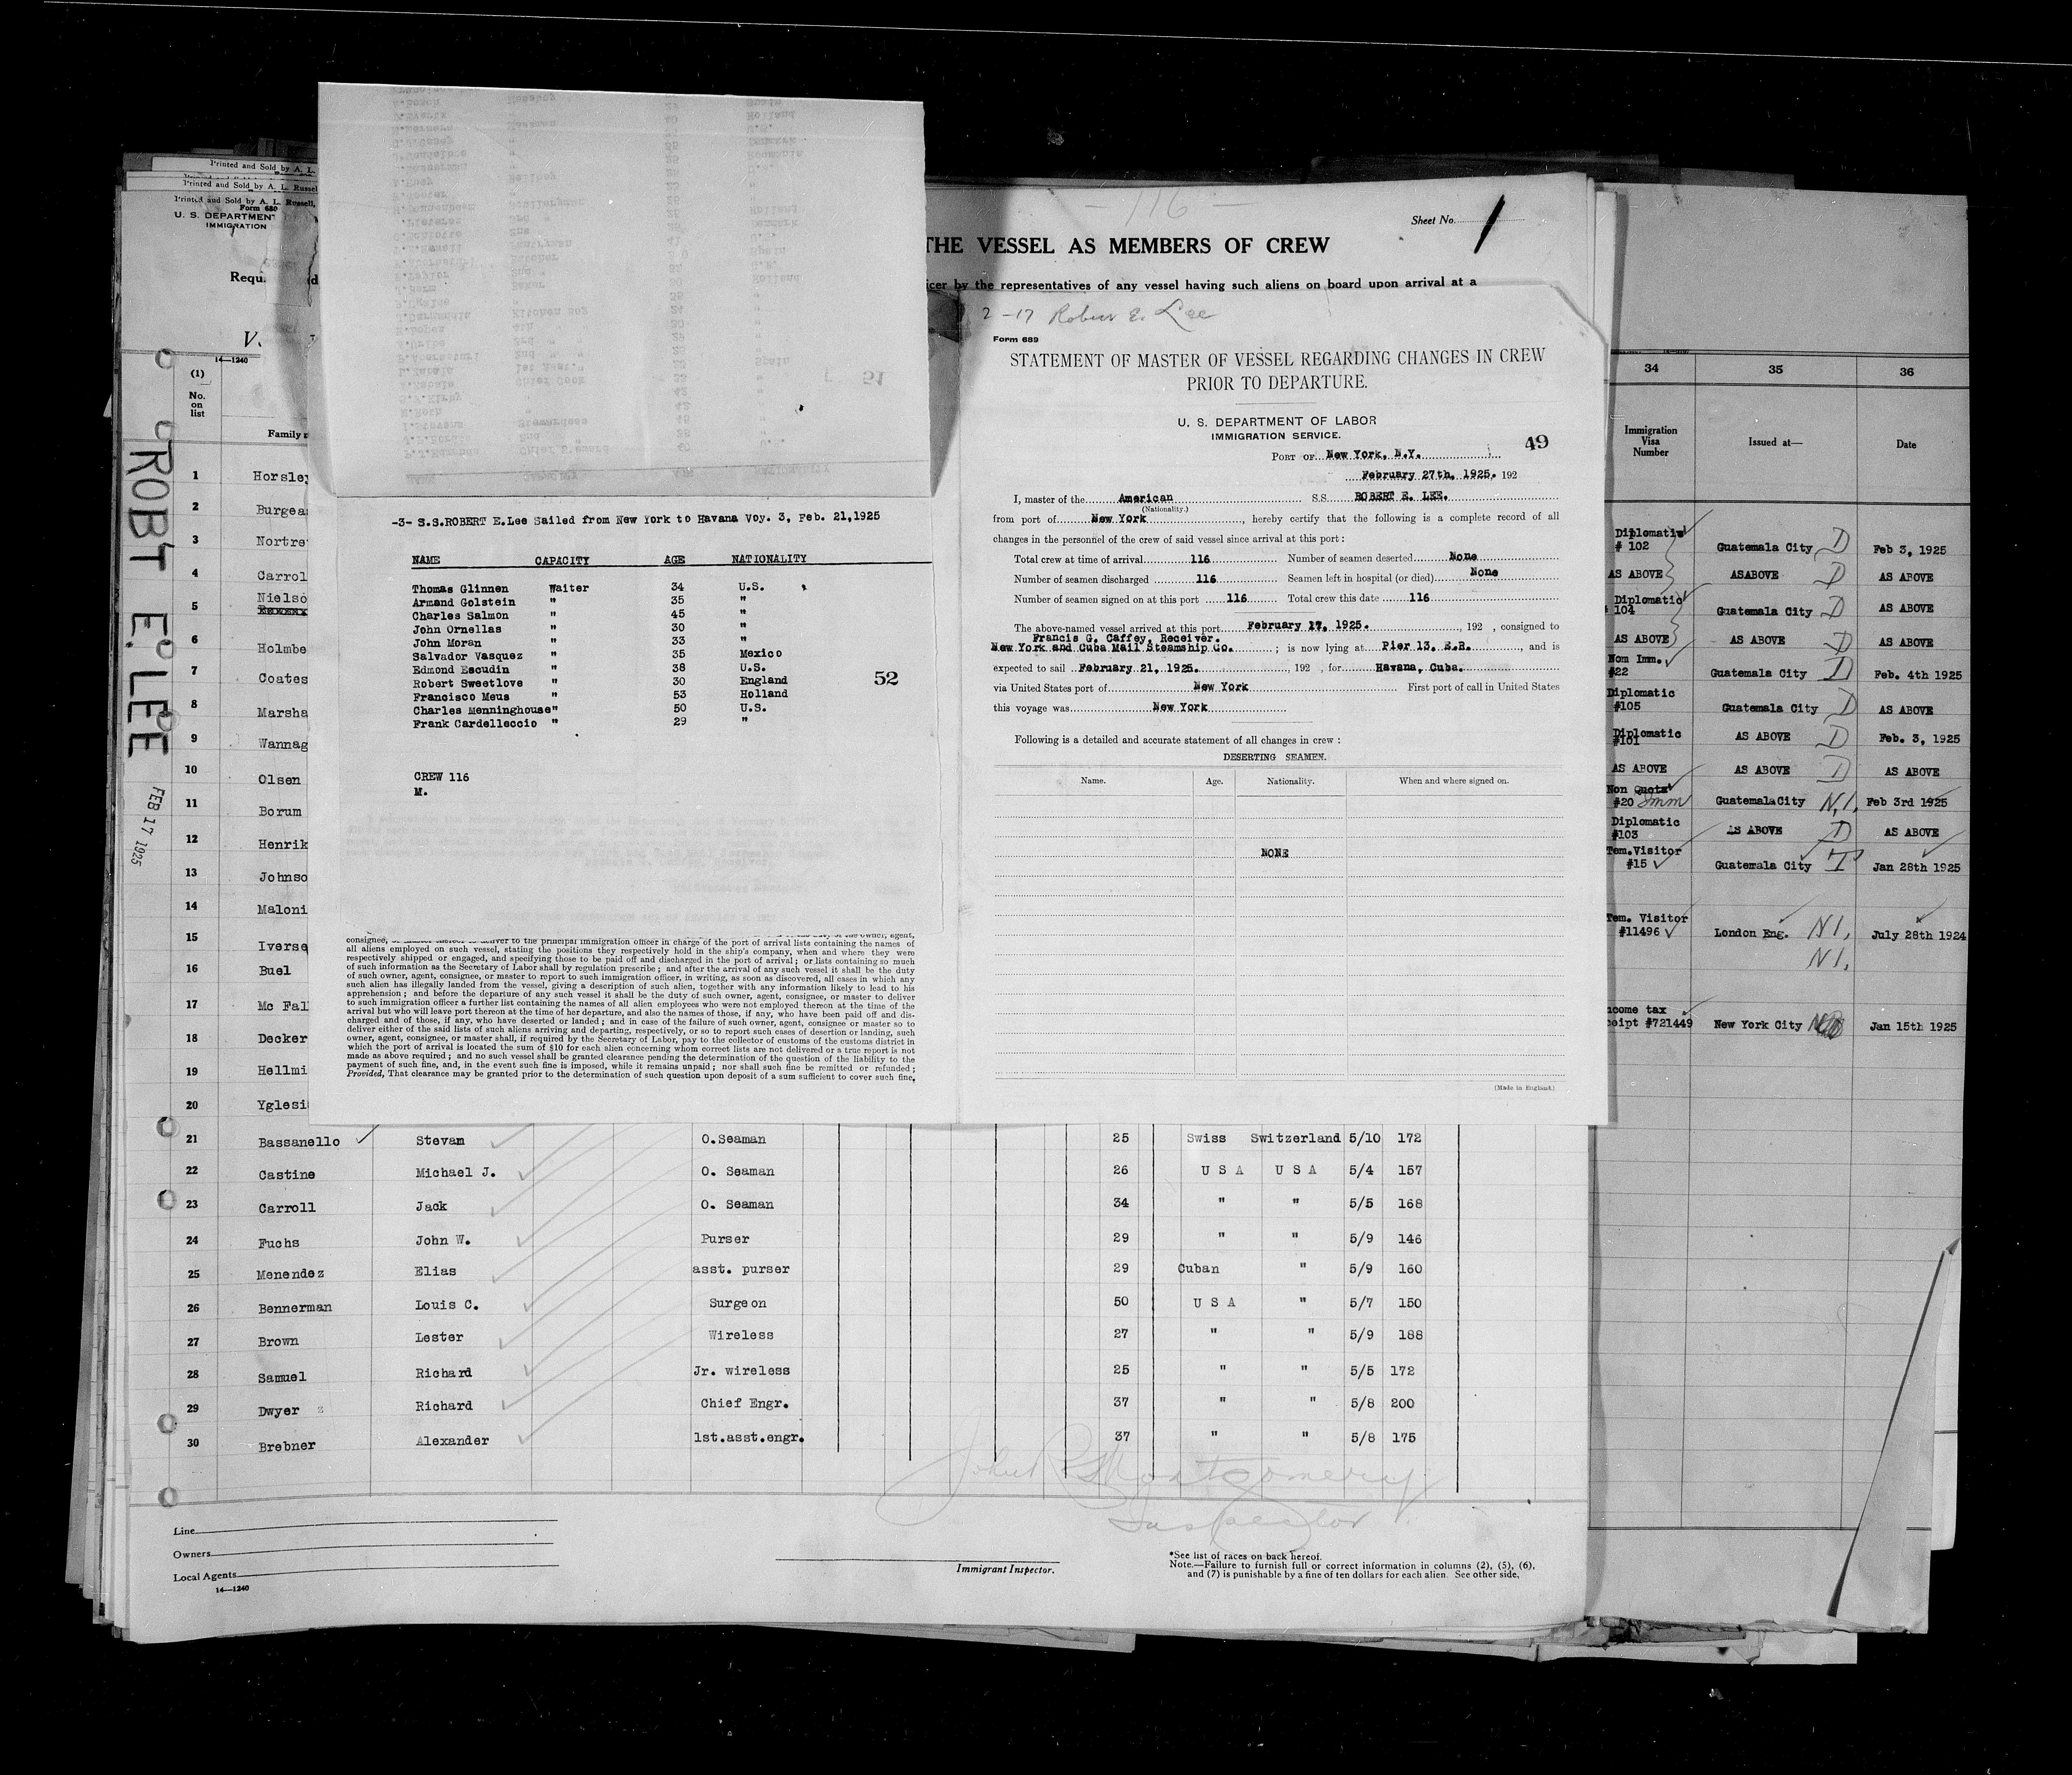 Printed and Sold by A. L.
Printed and Sold by A. L. Russel
Printed and Sold by A. L. Russell,
Form 680
U. S. DEPARTMENT
IMMIGRATION
14—1240
(1)
No.
on
list
Family
ROBT E. LEE
FEB 17 1925
1 Horsley
2 Burgea
3 Nortre
4 Carrol
5 Nielso
6 Holmbe
7 Coates
8 Marsha
9 Wannag
10 Olsen
11 Borum
12 Henrik
13 Johnso
14 Maloni
15 Iverse
16 Buel
17 Mc Fal
18 Decker
19 Hellmi
20 Yglesi
51
-3- S.S.ROBERT E.Lee Sailed from New York to Havana Voy. 3, Feb. 21,1925
NAME CAPACITY AGE NATIONALITY
Thomas Glinnen Waiter 34 U.S.
Armand Golstein " 35 "
Charles Salmon " 45 "
John Ornellas " 30 "
John Moran " 33 "
Salvador Vasquez " 35 Mexico
Edmond Escudin " 38 U.S.
Robert Sweetlove " 30 England
52
Francisco Meus " 53 Holland
Charles Menninghouse" 50 U.S.
Frank Cardelleccio " 29 "
CREW 116
M.
consignee, deliver to the principal immigration officer in charge of the port of arrival lists containing the names of
all aliens employed on such vessel, stating the positions they respectively hold in the ship's company, when and where they were
respectively shipped or engaged, and specifying those to be paid off and discharged in the port of arrival; or lists containing so much
of such information as the Secretary of Labor shall by regulation prescribe; and after the arrival of any such vessel it shall be the duty
of such owner, agent, consignee, or master to report to such immigration officer, in writing, as soon as discovered, all cases in which any
such alien has illegally landed from the vessel, giving a description of such alien, together with any information likely to lead to his
apprehension; and before the departure of any such vessel it shall be the duty of such owner, agent, consignee, or master to deliver
to such immigration officer a further list containing the names of all alien employees who were not employed thereon at the time of the
arrival but who will leave port thereon at the time of her departure, and also the names of those, if any, who have been paid off and dis-
charged and of those, if any, who have deserted or landed; and in case of the failure of such owner, agent, consignee or master so to
deliver either of the said lists of such aliens arriving and departing, respectively, or so to report such cases of desertion or landing, such
owner, agent, consignee, or master, shall, if required by the Secretary of Labor, pay to the collector of customs of the customs district in
which the port of arrival is located the sum of $10 for each alien concerning whom correct lists are not delivered or a true report is not
made as above required; and no such vessel shall be granted clearance pending the determination of the question of the liability to the
payment of such fine, and, in the event such fine is imposed, while it remains unpaid; nor shall such fine be remitted or refunded;
Provided, That clearance may be granted prior to the determination of such question upon deposit of a sum sufficient to cover such fine,
- 116 -
Sheet No. 1
THE VESSEL AS MEMBERS OF CREW
icer by the representatives of any vessel having such aliens on board upon arrival at a
2 -17 Robert E. Lee
Form 689
STATEMENT OF MASTER OF VESSEL REGARDING CHANGES IN CREW
PRIOR TO DEPARTURE.
U. S. DEPARTMENT OF LABOR
IMMIGRATION SERVICE.
49
PORT OF New York, N.Y.
February 27th, 1925. 192
I, master of the American S.S. ROBERT E. LEE.
(Nationality.)
from port of New York, hereby certify that the following is a complete record of all
changes in the personnel of the crew of said vessel since arrival at this port:
Total crew at time of arrival 116 Number of seamen deserted None
Number of seamen discharged 116 Seamen left in hospital (or died) None
Number of seamen signed on at this port 116 Total crew this date 116
The above-named vessel arrived at this port February 17, 1925. , 192 , consigned to
Francis G. Caffey, Receiver.
New York and Cuba Mail Steamship Co. ; is now lying at Pier 13, E.R. , and is
expected to sail February 21, 1925. , 192 , for Havana, Cuba.
via United States port of New York First port of call in United States
this voyage was New York
Following is a detailed and accurate statement of all changes in crew:
DESERTING SEAMEN.
Name. Age. Nationality. When and where signed on.
NONE
(Made in England.)
34 35 36
Immigration
Visa
Number
Issued at—
Date
Diplomatic
# 102 Guatemala City D Feb 3, 1925
AS ABOVE ASABOVE D AS ABOVE
Diplomatic
# 104 Guatemala City D AS ABOVE
AS ABOVE AS ABOVE D AS ABOVE
Nom Imm.
#22 Guatemala City D Feb. 4th 1925
Diplomatic
#105 Guatemala City D AS ABOVE
Diplomatic
#101 AS ABOVE D Feb. 3, 1925
AS ABOVE AS ABOVE D AS ABOVE
Non Quota
#20 Imm Guatemala City N.I. Feb 3rd 1925
Diplomatic
#103 AS ABOVE D AS ABOVE
Tem.Visitor
#15 Guatemala City T Jan 28th 1925
Tem. Visitor
#11496 London Eng. N.I. July 28th 1924
N.I.
ncome tax
ceipt #721449 New York City Jan 15th 1925
21 Bassanello Stevam O.Seaman 25 Swiss Switzerland 5/10 172
22 Castine Michael J. O. Seaman 26 U S A U S A 5/4 157
23 Carroll Jack O. Seaman 34 " " 5/5 168
24 Fuchs John W. Purser 29 " " 5/9 146
25 Menendez Elias asst. purser 29 Cuban " 5/9 160
26 Bennerman Louis C. Surgeon 50 U S A " 5/7 150
27 Brown Lester Wireless 27 " " 5/9 188
28 Samuel Richard Jr. wireless 25 " " 5/5 172
29 Dwyer Richard Chief Engr. 37 " " 5/8 200
30 Brebner Alexander 1st.asst.engr. 37 " " 5/8 175
John R Montgomery
Inspector
Line
Owners
Local Agents
14—1240
Immigrant Inspector.
*See list of races on back hereof.
Note.—Failure to furnish full or correct information in columns (2), (5), (6),
and (7) is punishable by a fine of ten dollars for each alien. See other side.